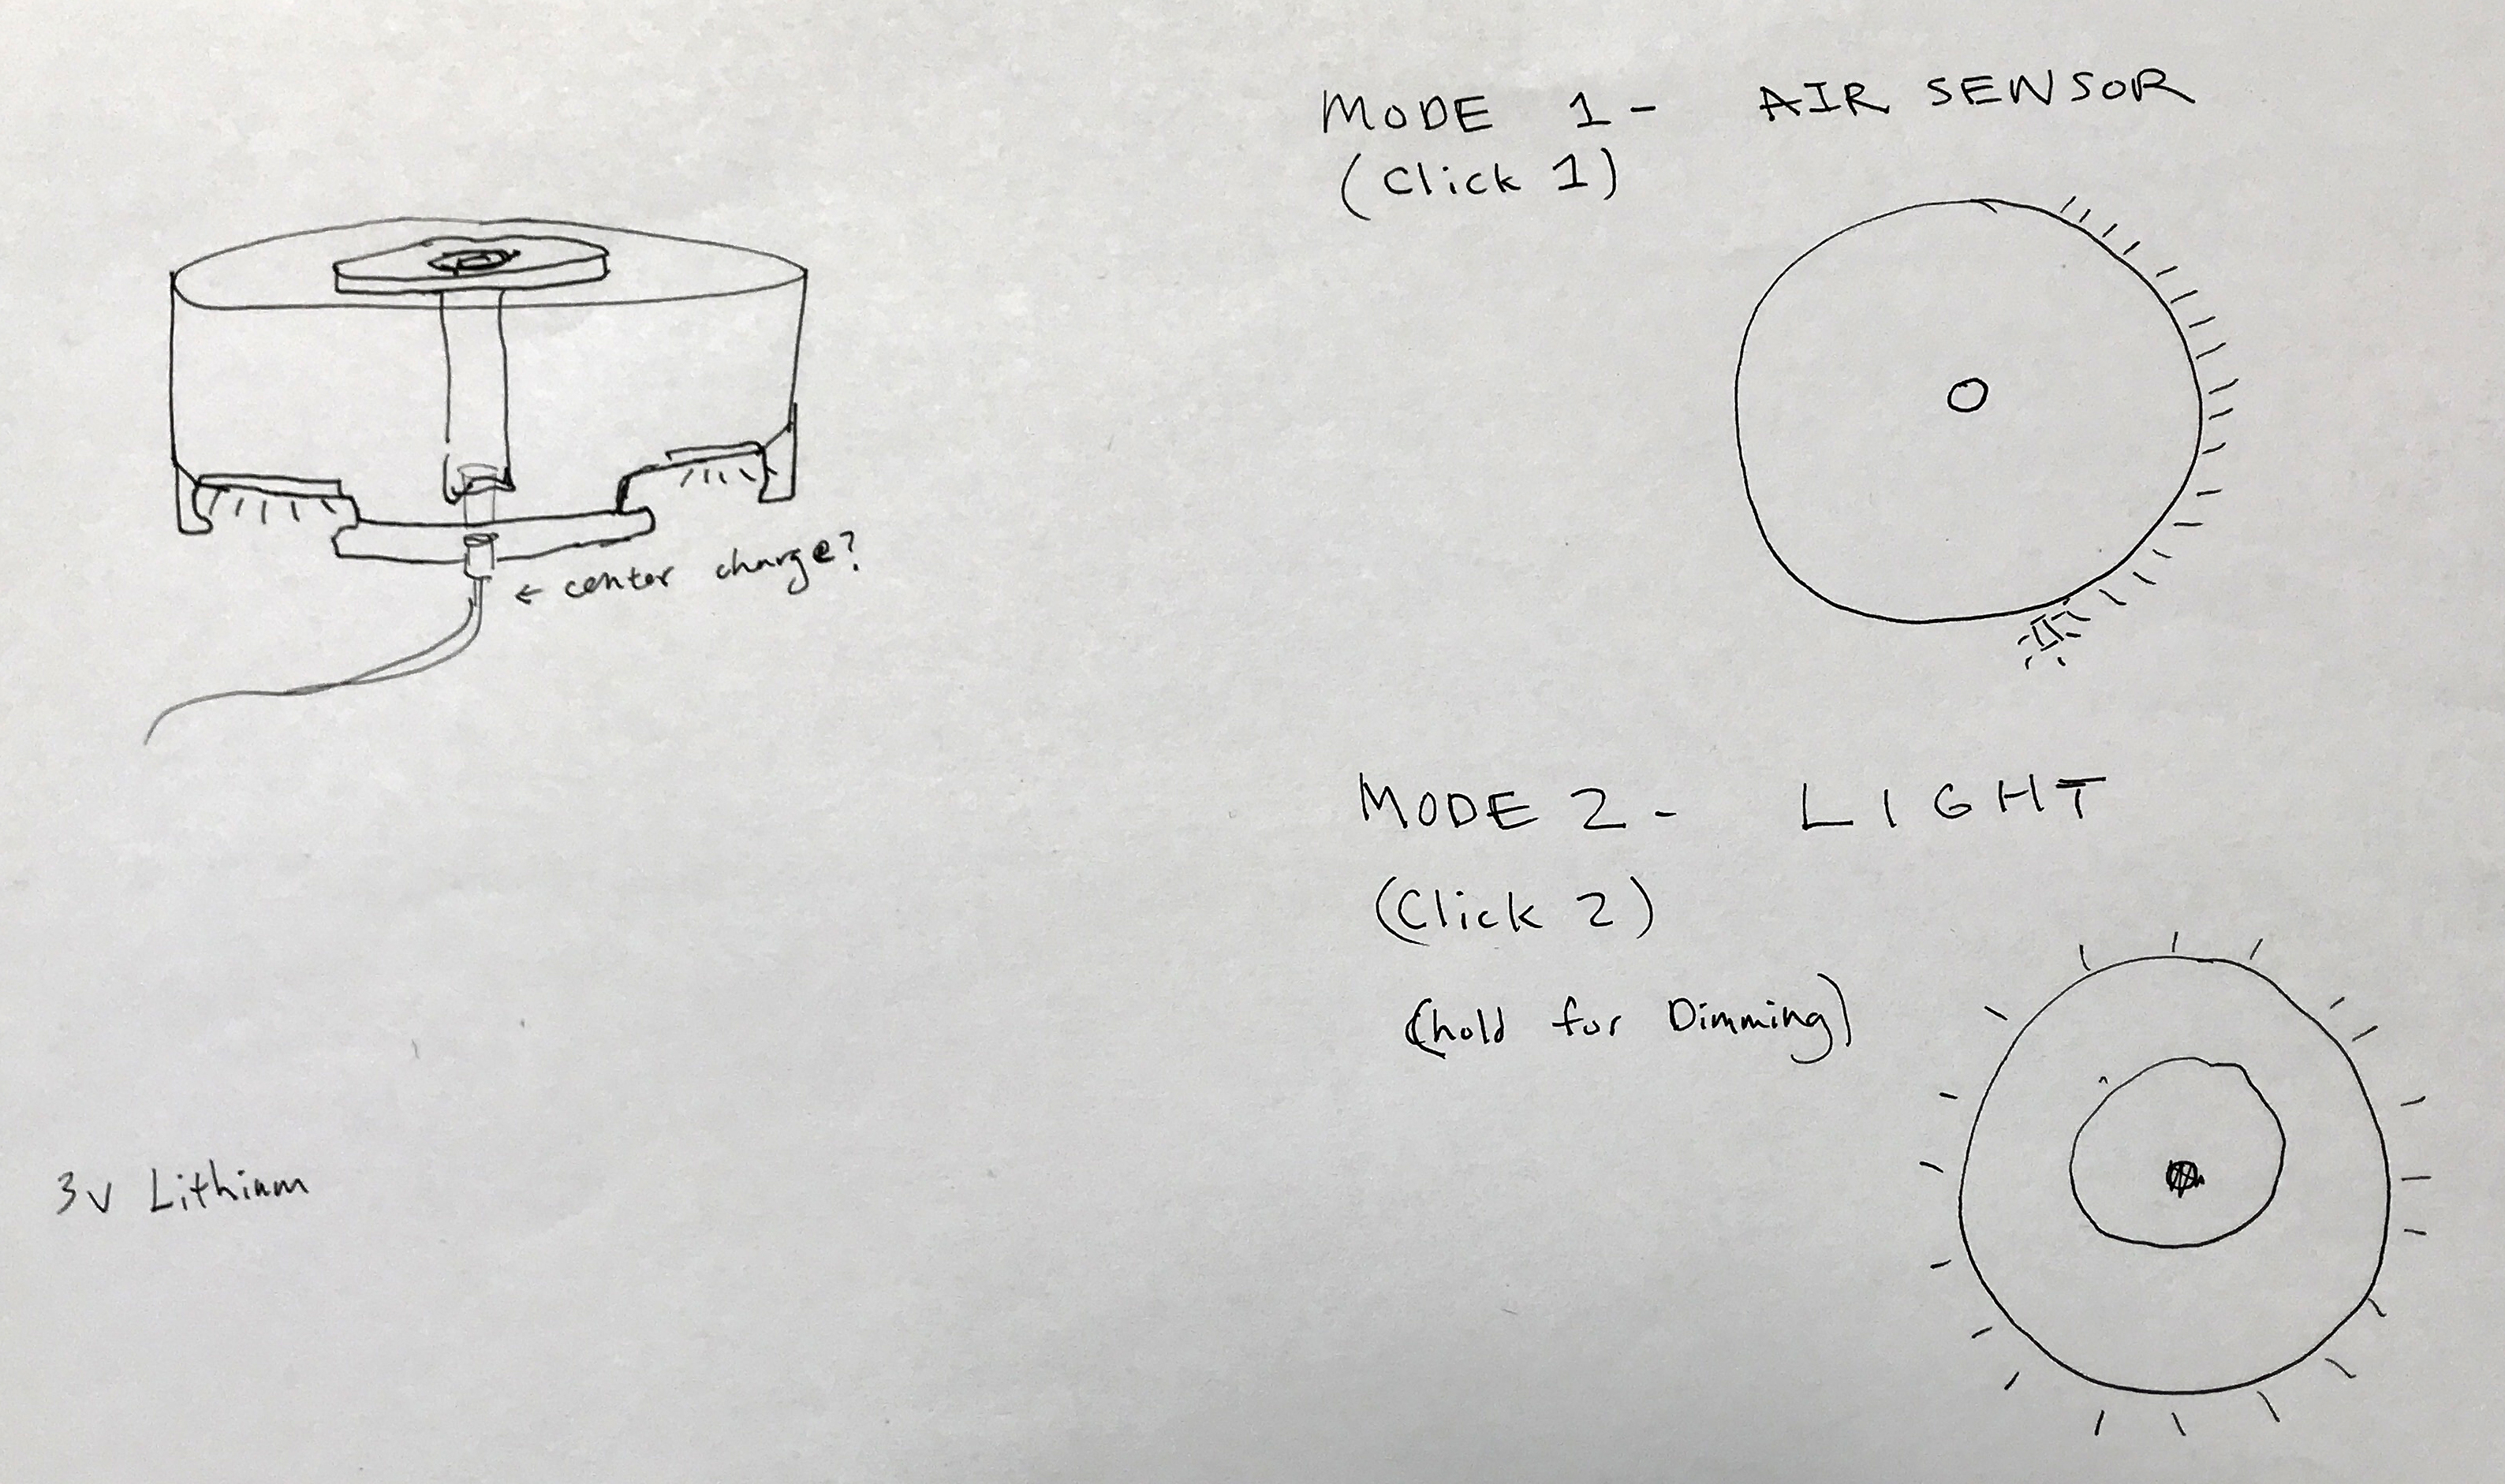 MODE 1 - AIR SENSOR
(Click 1)
← center charge?
MODE 2 - LIGHT
(Click 2)
(hold for Dimming)
3v Lithium